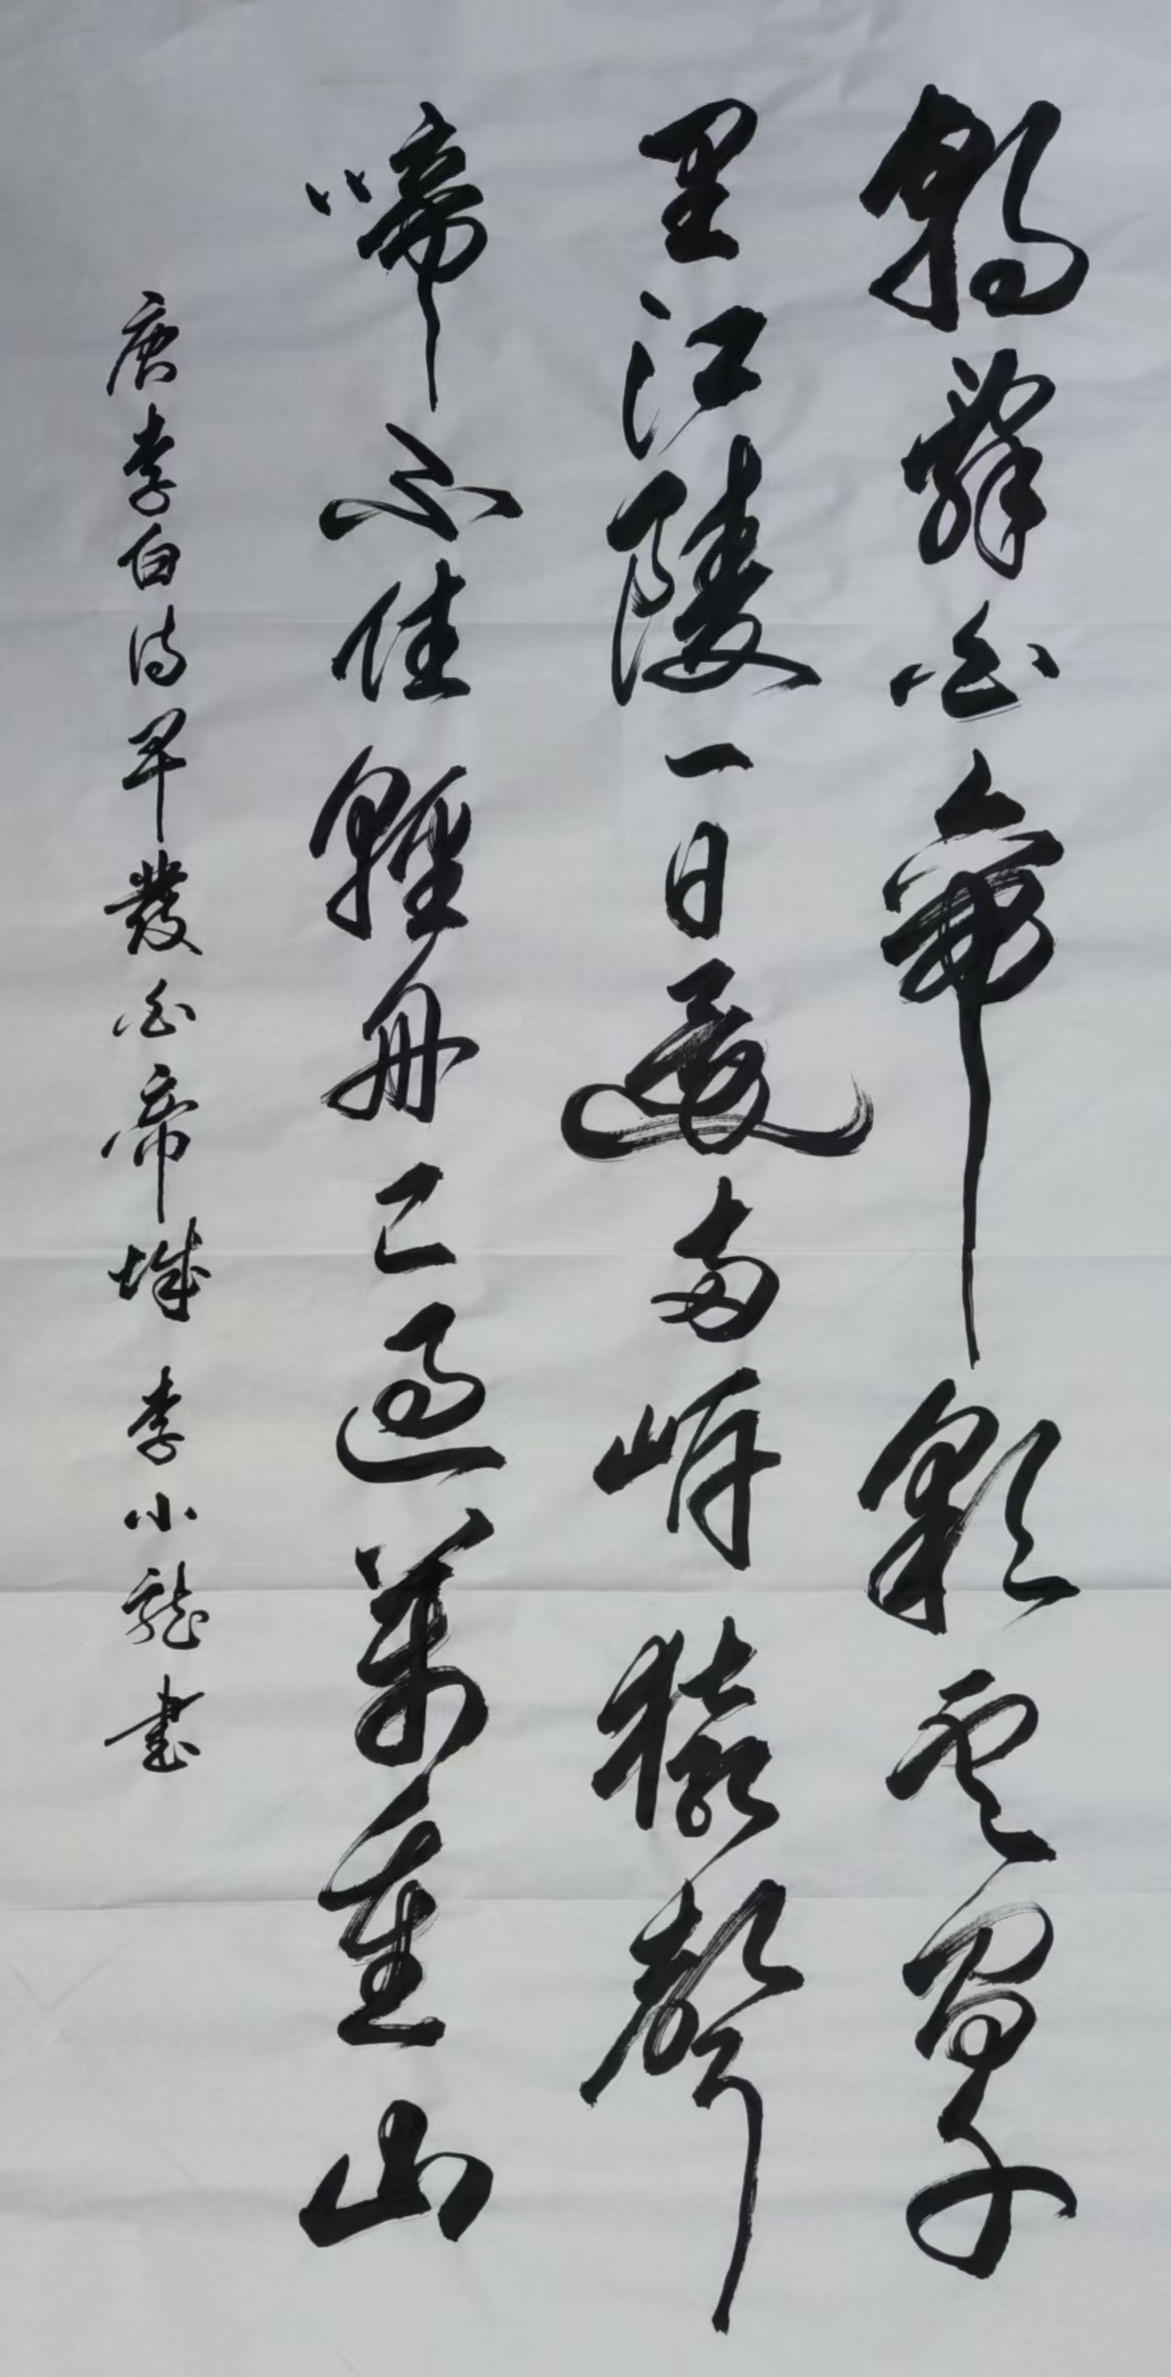 朝辭白帝彩雲間千
里江陵一日還兩岸猿聲
啼不住輕舟已過萬重山
唐李白詩早發白帝城 李小龍書